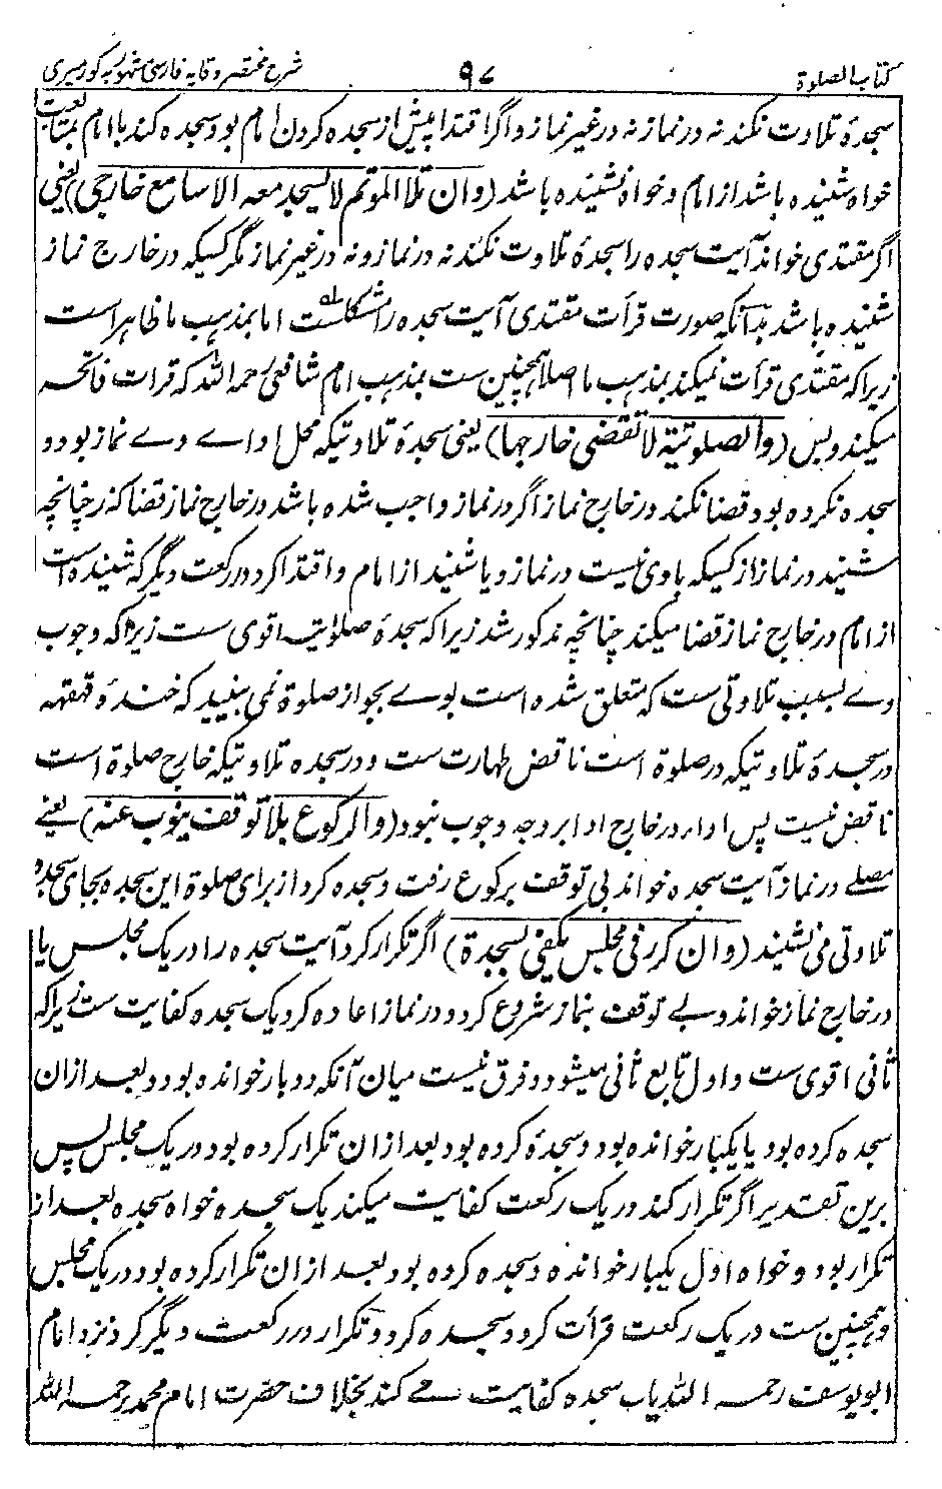 كتاب الصلوة
۹۷
شرح مختصر وقایه فارسی مشهور به کورمیری
سجدهٔ تلاوت نکند نه در نماز نه در غیر نماز و اگر اقتدا پیش از سجده کردن امام بود سجده کند با امام بمتابعت
خواه شنیده باشد از امام و خواه نشنیده باشد (وان تلا المؤتم لا یسجد معه الا سامع خارجی) یعنی
اگر مقتدی خواند آیت سجده را سجدهٔ تلاوت نکند نه در نماز و نه در غیر نماز مگر کسیکه در خارج نماز
شنیده باشد بدانکه صورت قرأت مقتدی آیت سجده را مشکلست اما بمذهب ما ظاهر است
زیرا که مقتدی قرأت نمیکند بمذهب ما اصلا همچنین ست بمذهب امام شافعی رحمه الله که قرات فاتحه
میکند و بس (والصلوتیة لا تقضی خارجها) یعنی سجدهٔ تلاوتیکه محل اداے وے نماز بود و
سجده نکرده بود قضا نکند در خارج نماز اگر در نماز واجب شده باشد در خارج نماز قضا کند چنانچه
شنید در نماز از کسیکه با وی نیست در نماز و یا شنید از امام و اقتدا کرد در رکعت دیگر که شنیده است
از امام در خارج نماز قضا میکند چنانچه مذکور شد زیرا که سجدهٔ صلواتیه اقوی ست زیرا که وجوب
وے بسبب تلاوتی ست که متعلق شده است بوے بجواز صلوة نمی بینید که خندهٔ قهقهه
در سجدهٔ تلاوتیکه در صلوة است ناقض طهارت ست و در سجده تلاوتیکه خارج صلوة است
ناقض نیست پس ادا در خارج ادا بر وجه وجوب نبود (والرکوع بلا توقف ینوب عنه) یعنے
مصلے در نماز آیت سجده خواند بی توقف برکوع رفت و سجده کرد از برای صلوة این سجده بجای سجدهٔ
تلاوتی می نشیند (وان کرر فی مجلس یکفی سجدة) اگر تکرار کرد آیت سجده را در یک مجلس یا
در خارج نماز خواند و بے توقف بنماز شروع کرد و در نماز اعاده کرد یک سجده کفایت ست زیرا که
ثانی اقوی ست و اول تابع ثانی میشود و فرق نیست میان آنکه دو بار خوانده بود و بعد ازان
سجده کرده بود یا یکبار خوانده بود و سجدهٔ کرده بود بعد ازان تکرار کرده بود در یک مجلس پس
برین تقدیر اگر تکرار کند در یک رکعت کفایت میکند یک سجده خواه سجده بعد از
تکرار بود و خواه اول یکبار خوانده و سجده کرده بود بعد ازان تکرار کرده بود در یک مجلس
و همچنین ست در یک رکعت قرأت کرد و سجده کرد و تکرار در رکعت دیگر کرد نزد امام
ابو یوسف رحمه الله یک سجده کفایت مے کند بخلاف حضرت امام محمد رحمه الله